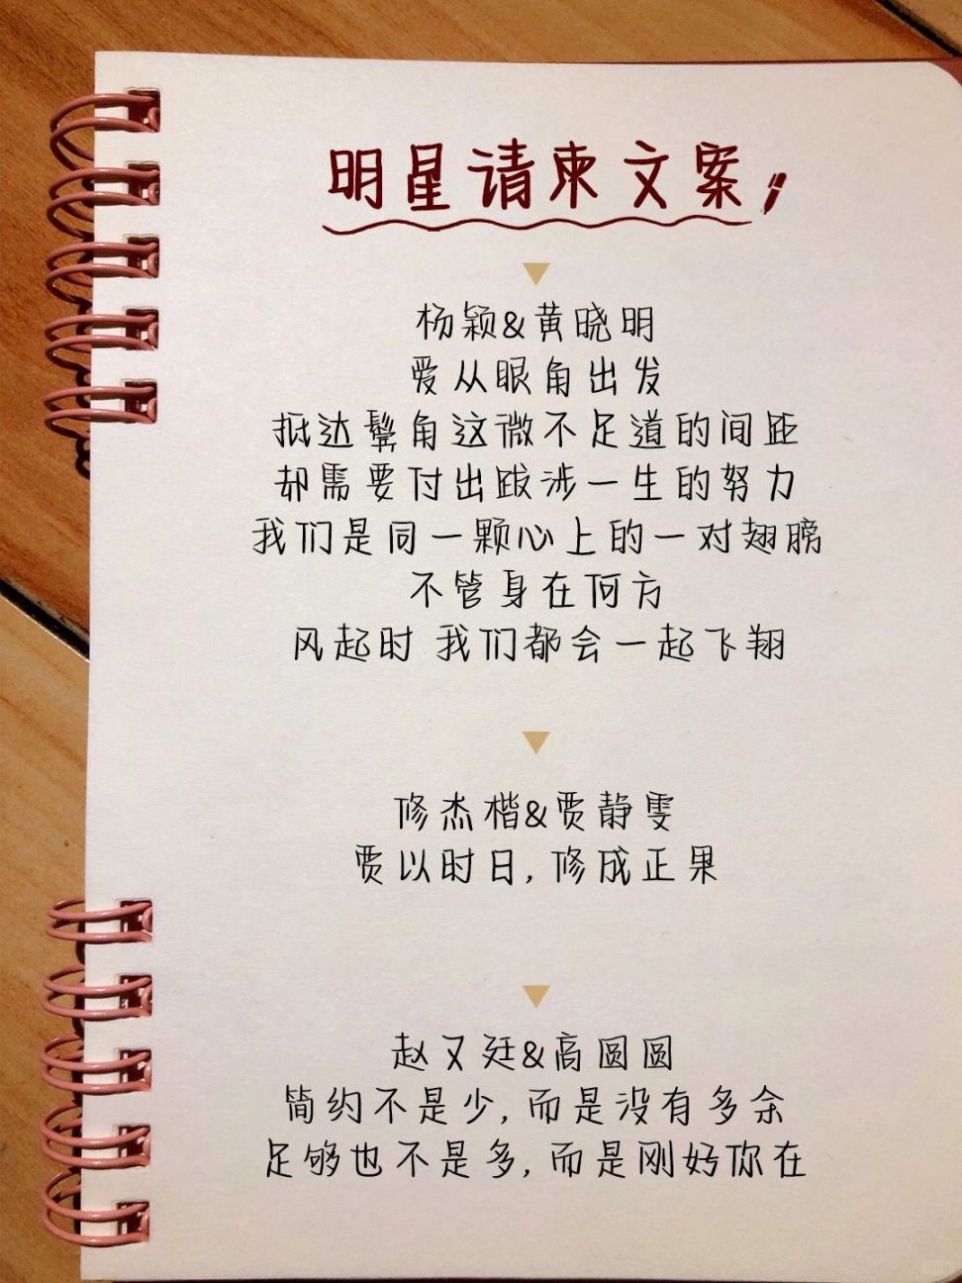 明星请柬文案
杨颖&黄晓明
爱从眼角出发
抵达鬓角这微不足道的间距
却需要付出跋涉一生的努力
我们是同一颗心上的一对翅膀
不管身在何方
风起时 我们都会一起飞翔
修杰楷&贾静雯
贾以时日,修成正果
赵又廷&高圆圆
简约不是少,而是没有多余
足够也不是多,而是刚好你在